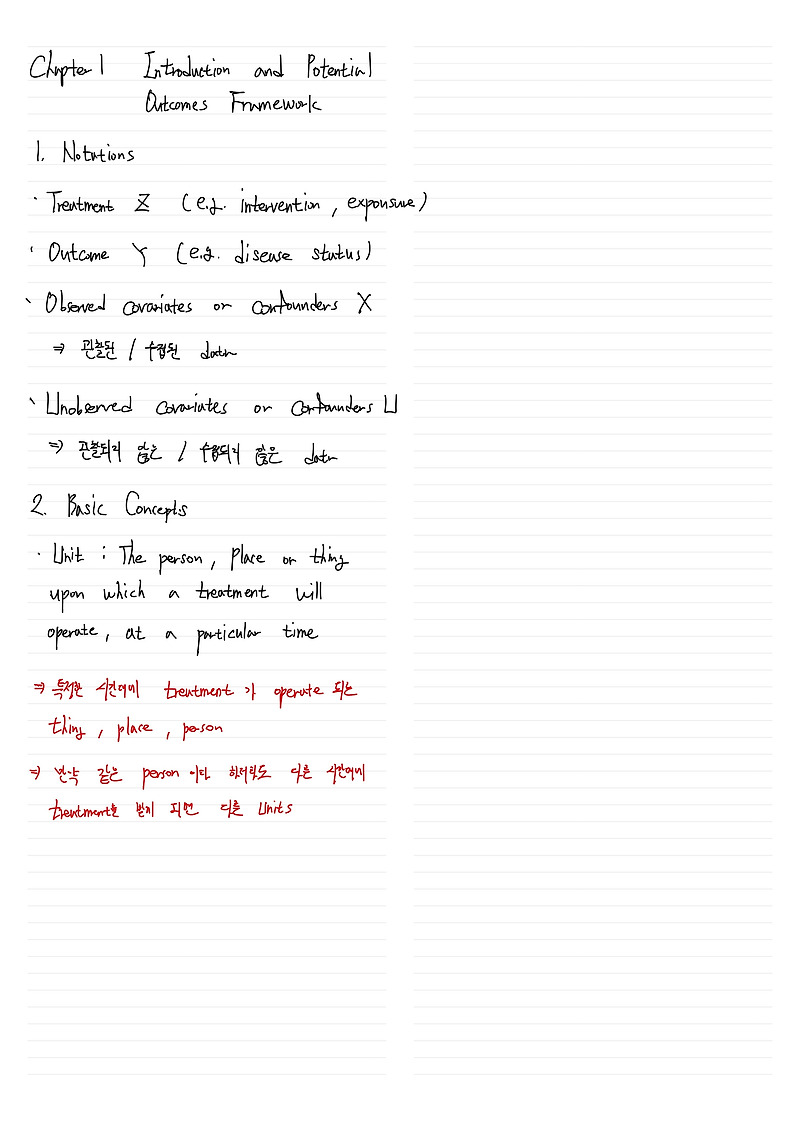 Chapter 1 Introduction and Potential
Outcomes Framework
1. Notations
· Treatment Z (e.g. intervention, exponsure)
· Outcome Y (e.g. disease status)
· Observed covariates or confounders X
⇒ 관찰된 / 수집된 data
· Unobserved covariates or confounders U
⇒ 관찰되지 않은 / 수집되지 않은 data
2. Basic Concepts
· Unit : The person, place or thing
upon which a treatment will
operate, at a particular time
⇒ 특정한 시간에 treatment가 operate 되는
thing, place, person
⇒ 만약 같은 person 이다 하더라도 다른 시간에
treatment를 받게 되면 다른 units